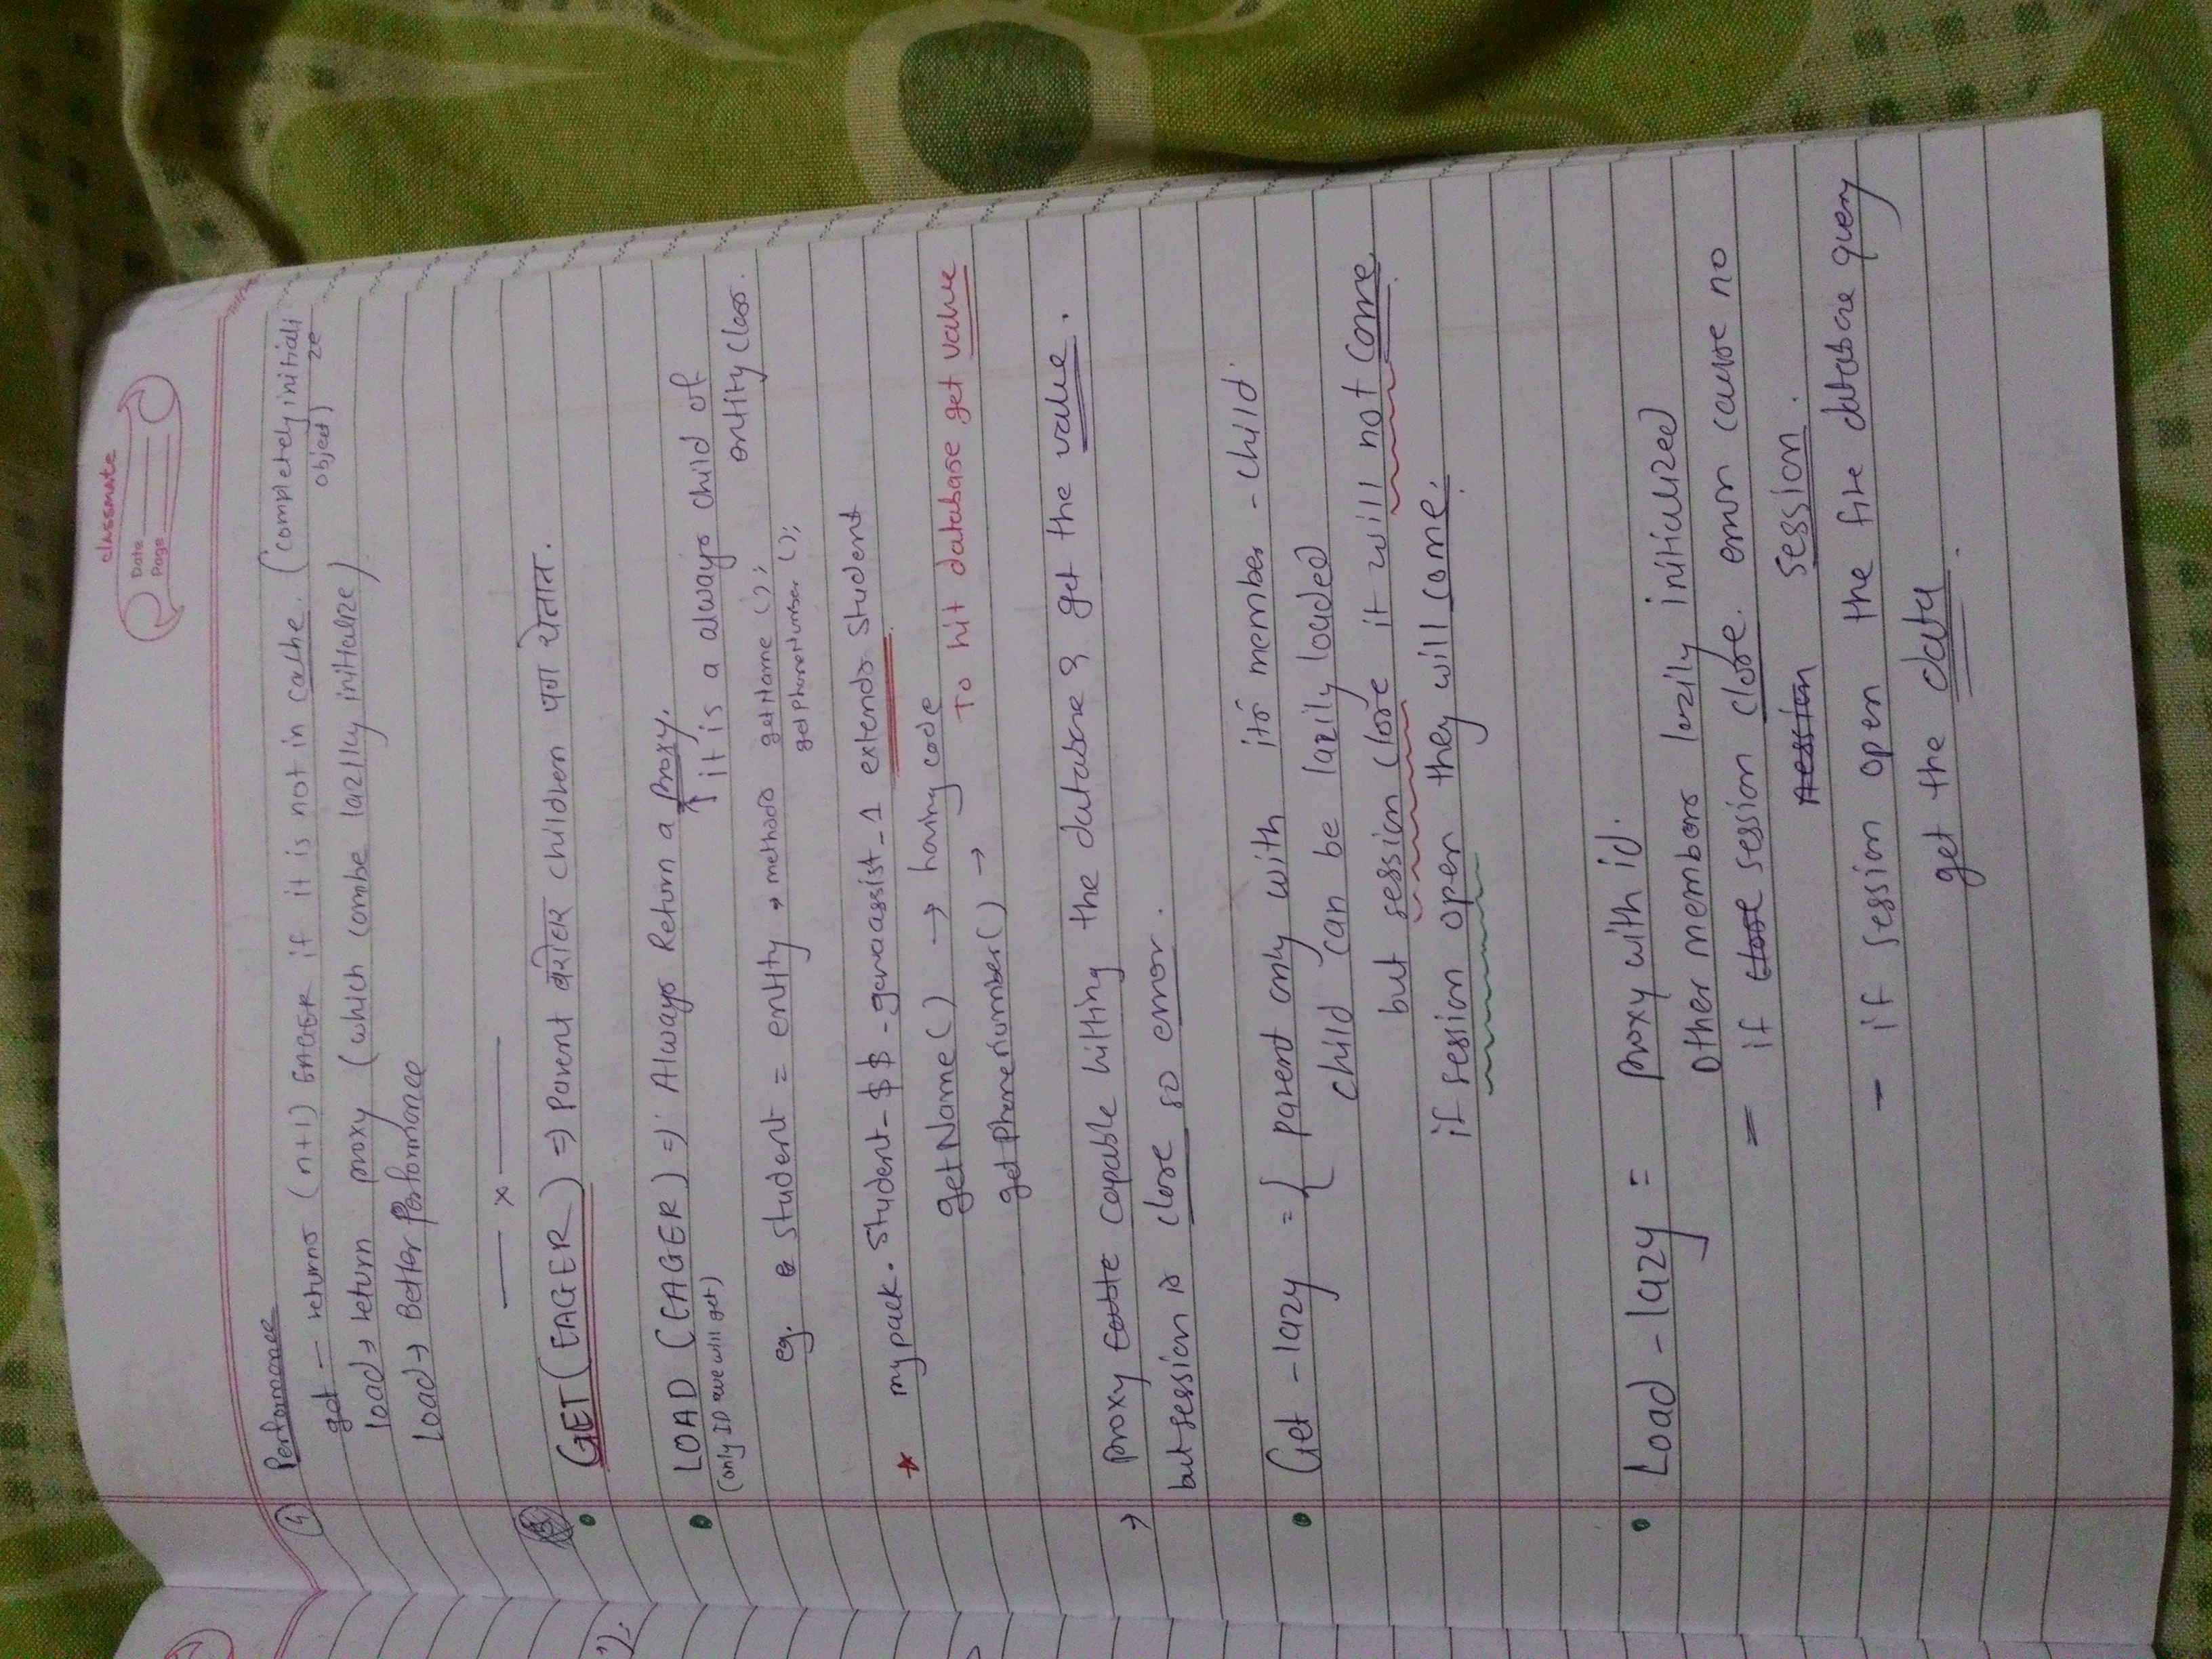 classmate
Date
Page
4 Performance
get - returns (n+1) EAGER if it is not in cache. (completely initiali
ze
object)
load → return proxy (which combe lazilly initialize)
Load → Better Performance
— x —
GET (EAGER) => Parent बरोबर children पण येतात.
LOAD (EAGER) => Always Return a Proxy.
(only ID we will get)
↑ it is a always child of
entity class.
eg. student = entity → methods getName ();
getPhoneNumber ();
mypack. Student_$$_gavaassist_1 extends Student
getName() → having code
To hit database get value
getPhoneNumber() →
→ proxy capable hitting the database & get the value.
but session is close so error.
Get - lazy = { parent only with its member - child
child can be lazily loaded
but session close it will not come
if session open they will come.
Load - lazy = proxy with id.
Other members lazily initialized
= if close session close. error cause no
session.
- if session open the fire database query
get the data